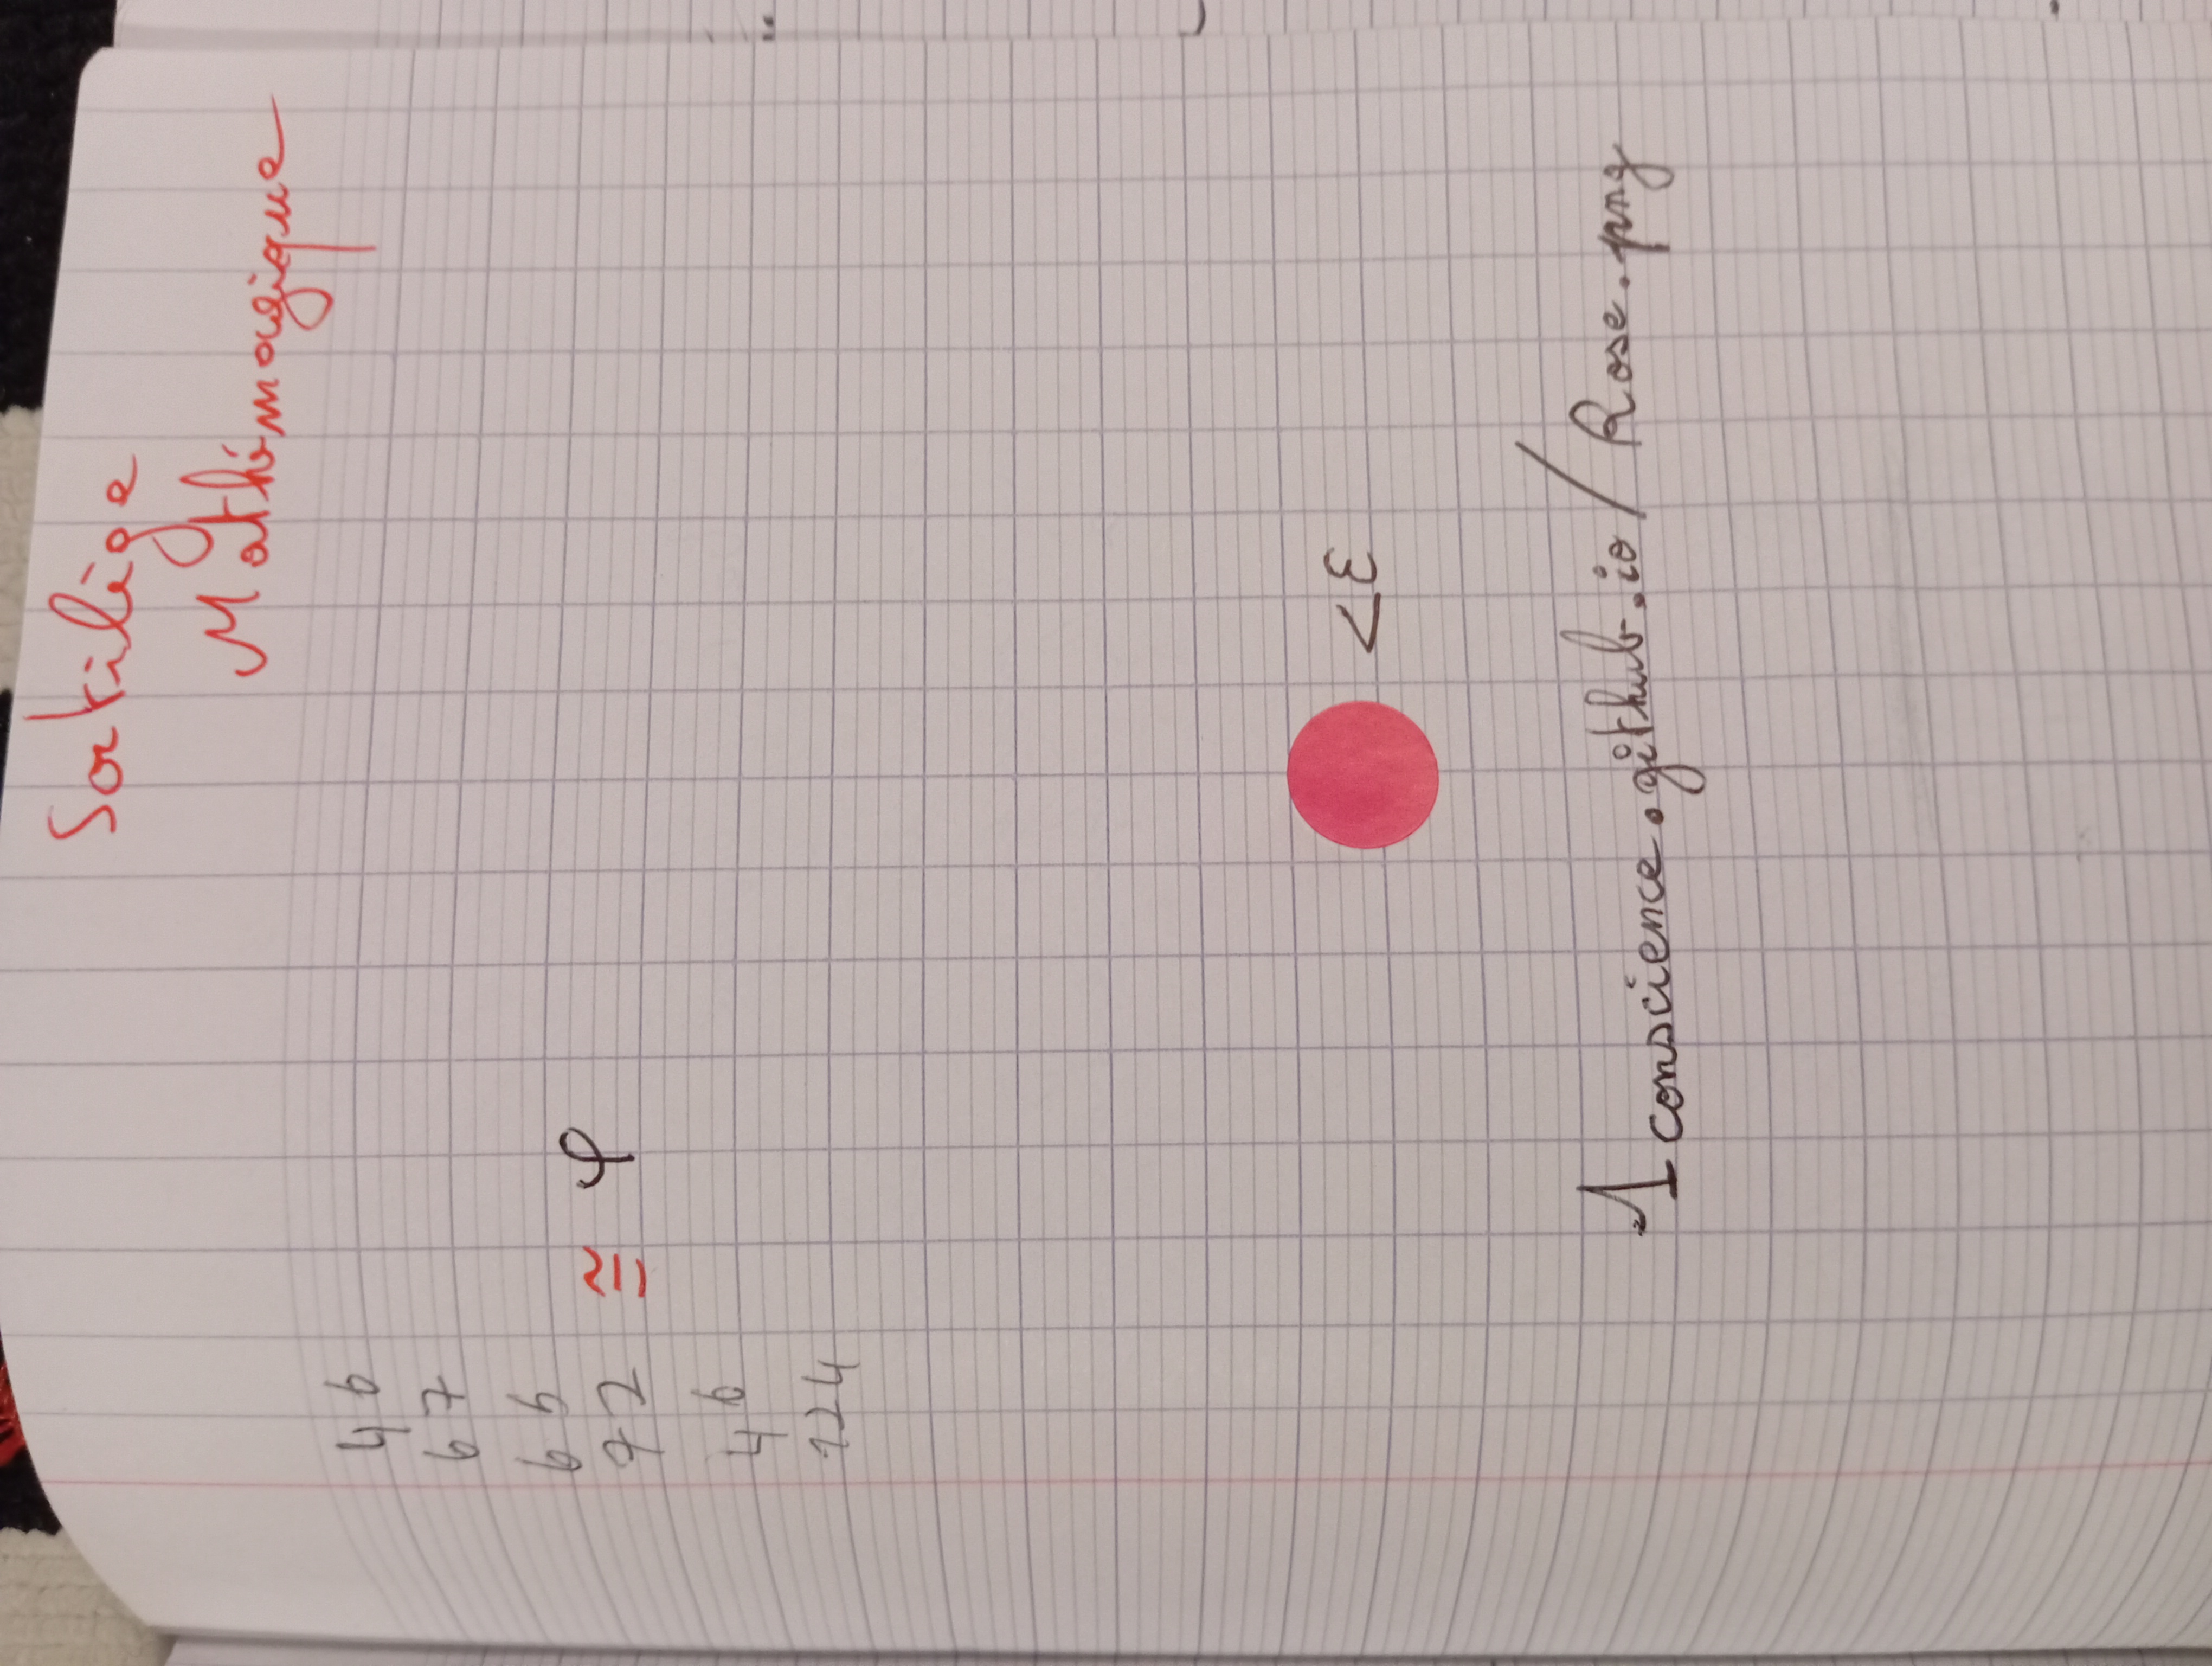 Sortilège
Mathémagique
46
67
66
72 ≅ φ
46
124
<ε
1conscience.github.io/Rose.png